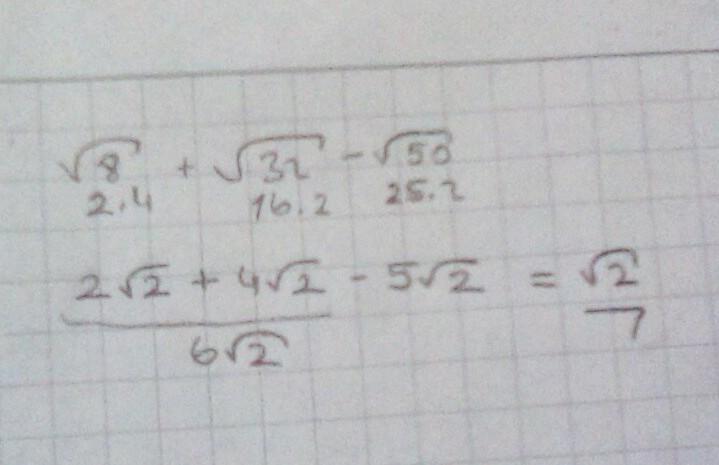 √8 + √32 - √50
2.4 16.2 25.2
2√2 + 4√2 - 5√2 = √2
6√2